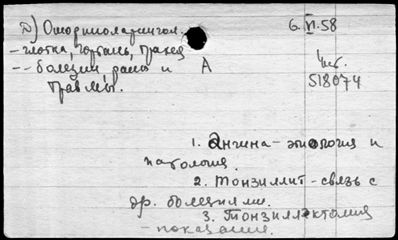 D) Оториноларингол.
6.VI.58
- глотка, гортань, трахея
-- болезни, раны и A
травмы.
Инст.
518074
1. Ангина - этиология и
патология.
2. Тонзиллит - связь с
др. болезнями.
3. Тонзиллэктомия
- показания.